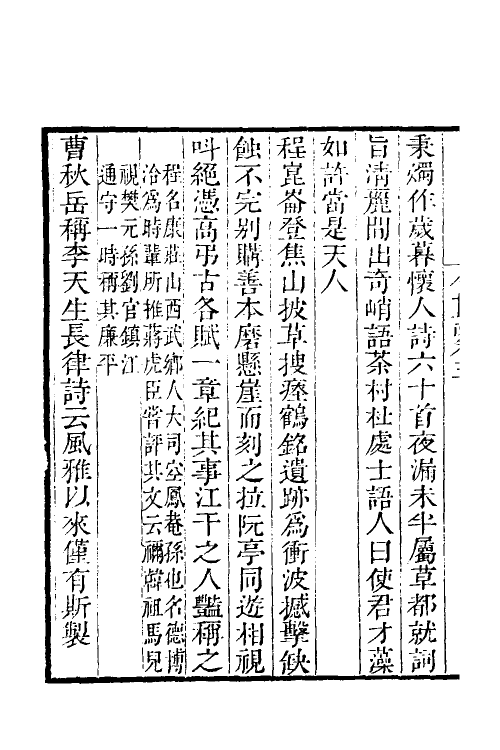 秉燭作歲暮懷人詩六十首夜漏未半屬草都就詞
旨淸麗間出奇峭語茶村杜處士語人曰使君才藻
如許當是天人
程崑崙登焦山披草搜瘞鶴銘遺跡爲衝波撼擊缺
蝕不完别購善本磨懸崖而刻之拉阮亭同遊相視
叫絕憑高弔古各賦一章紀其事江干之人豔稱之
程名康莊山西武鄉人大司空鳳菴孫也名德博
洽爲時輩所推蔣虎臣嘗評其文云禰韓祖馬兒
視樊元孫劉官鎭江
通守一時稱其廉平
曹秋岳稱李天生長律詩云風雅以來僅有斯製